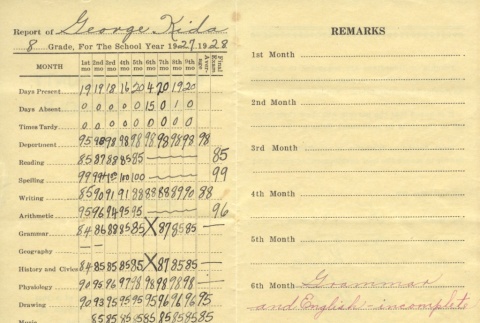 Report of George Kida
8 Grade, For The School Year 1927 1928
MONTH 1st mo 2nd mo 3rd mo 4th mo 5th mo 6th mo 7th mo 8th mo 9th mo Average Final Exam
Days Present 19 19 18 16 20 4 20 19 20
Days Absent 0 0 0 0 0 15 0 1 0
Times Tardy 0 0 0 0 0 0 0 0 0
Department 95 98 98 98 98 98 98 98 98 98
Reading 85 87 88 85 85 85
Spelling 99 99 100 100 99
Writing 85 90 91 91 88 88 88 89 90 88
Arithmetic 95 96 94 95 95 96
Grammar 84 86 88 85 85 X 87 85 85 —
Geography — —
History and Civics 84 85 85 85 85 X 87 85 85 —
Physiology 90 95 96 97 98 98 98 98 98 —
Drawing 90 93 95 95 95 95 96 96 96 95
Music 85 85 85 85 85 85 85 85 85
REMARKS
1st Month
2nd Month
3rd Month
4th Month
5th Month
6th Month Grammar
and English - incomplete